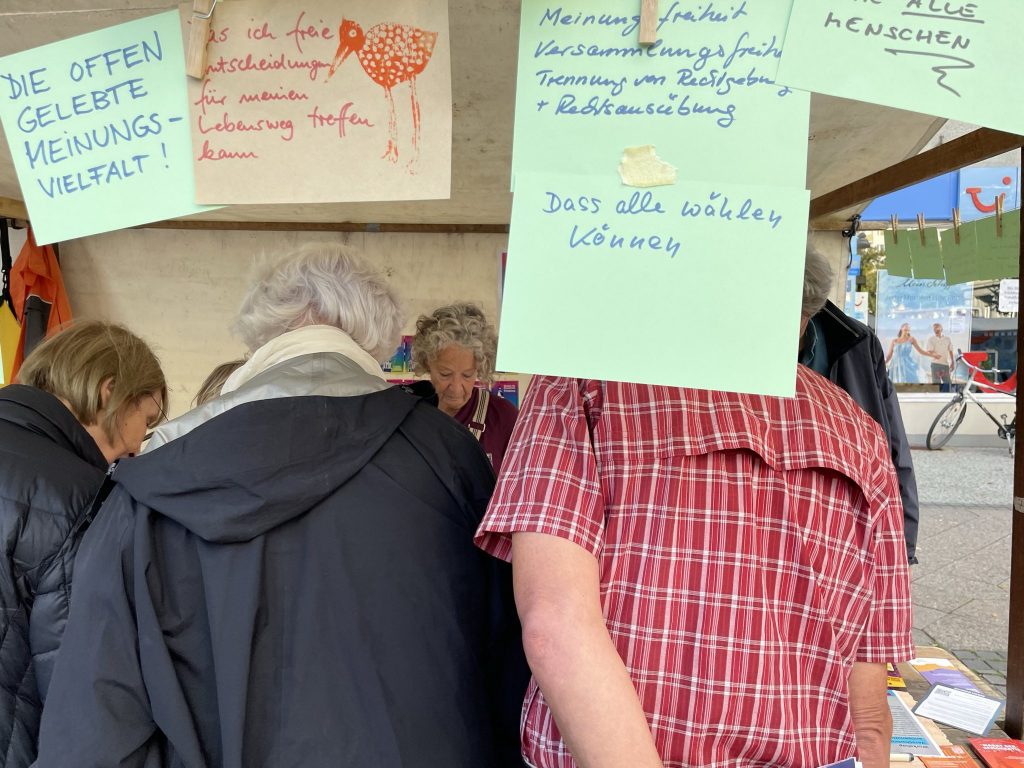 DIE OFFEN
GELEBTE
MEINUNGS-
VIELFALT!
ich freie
Entscheidungen
für meinen
Lebensweg treffen
kann
Meinungsfreiheit
Versammlungsfreih
Trennung von Rechtgebung
+ Rechtsausübung
Dass alle wählen
können
ALLE
MENSCHEN